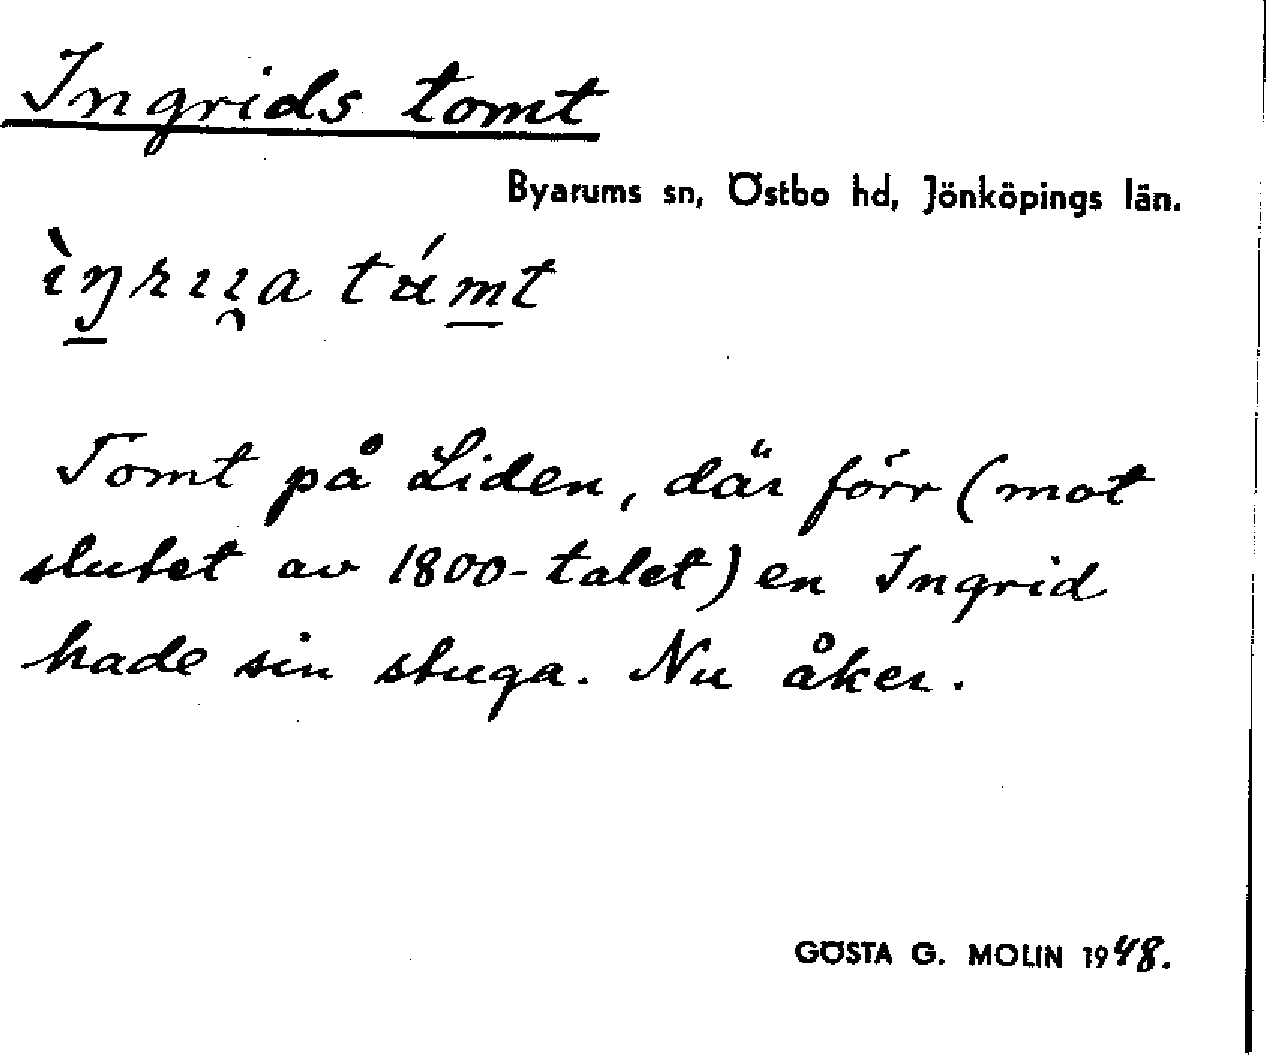 Ingrids tomt
Byarums sn, Östbo hd, Jönköpings län.
Tomt på Liden, där förr (mot
slutet av 1800-talet) en Ingrid
hade sin stuga. Nu åker.
GÖSTA G. MOLIN 1948.